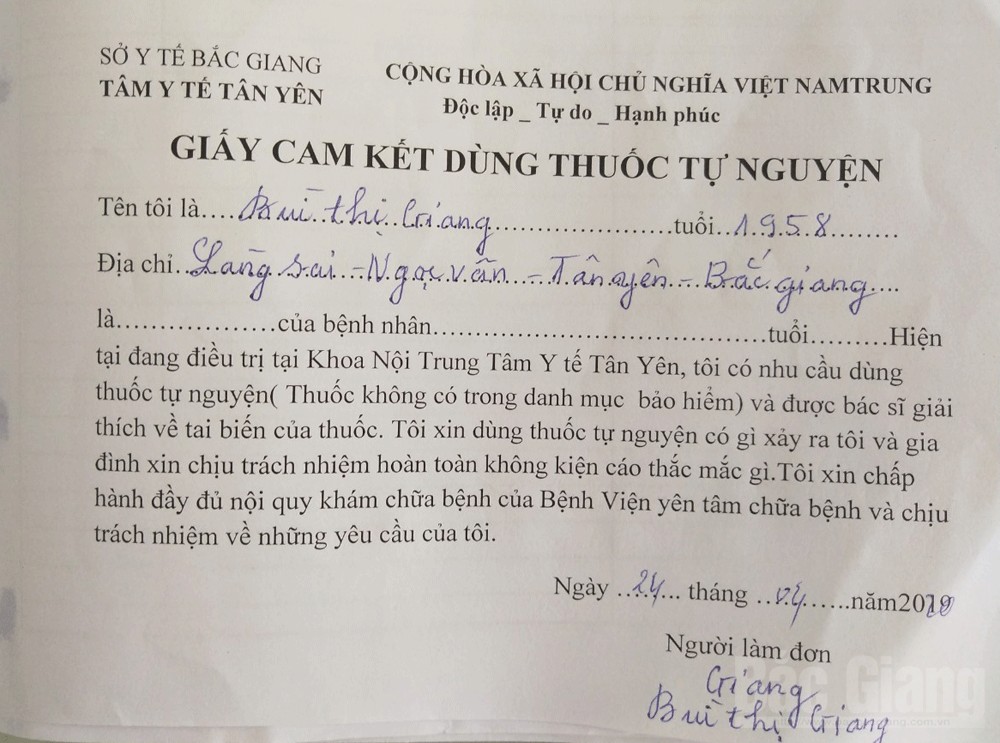 SỞ Y TẾ BẮC GIANG
TÂM Y TẾ TÂN YÊN
CỘNG HÒA XÃ HỘI CHỦ NGHĨA VIỆT NAMTRUNG
Độc lập _ Tự do _ Hạnh phúc
GIẤY CAM KẾT DÙNG THUỐC TỰ NGUYỆN
Tên tôi là....Bùi thị Giang......................tuổi..1958........
Địa chỉ..Làng sai - Ngọc vân - Tân yên - Bắc giang....
là....................của bệnh nhân..........................................tuổi..........Hiện
tại đang điều trị tại Khoa Nội Trung Tâm Y tế Tân Yên, tôi có nhu cầu dùng
thuốc tự nguyện( Thuốc không có trong danh mục bảo hiểm) và được bác sĩ giải
thích về tai biến của thuốc. Tôi xin dùng thuốc tự nguyện có gì xảy ra tôi và gia
đình xin chịu trách nhiệm hoàn toàn không kiện cáo thắc mắc gì.Tôi xin chấp
hành đầy đủ nội quy khám chữa bệnh của Bệnh Viện yên tâm chữa bệnh và chịu
trách nhiệm về những yêu cầu của tôi.
Ngày ..24... tháng ..04......năm2020
Người làm đơn
Giang
Bùi thị Giang
Bắc Giang